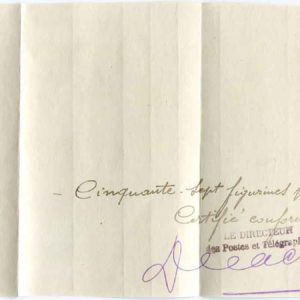 - Cinquante-sept figurines p
Certifié confor
LE DIRECTEUR
des Postes et Télégraph